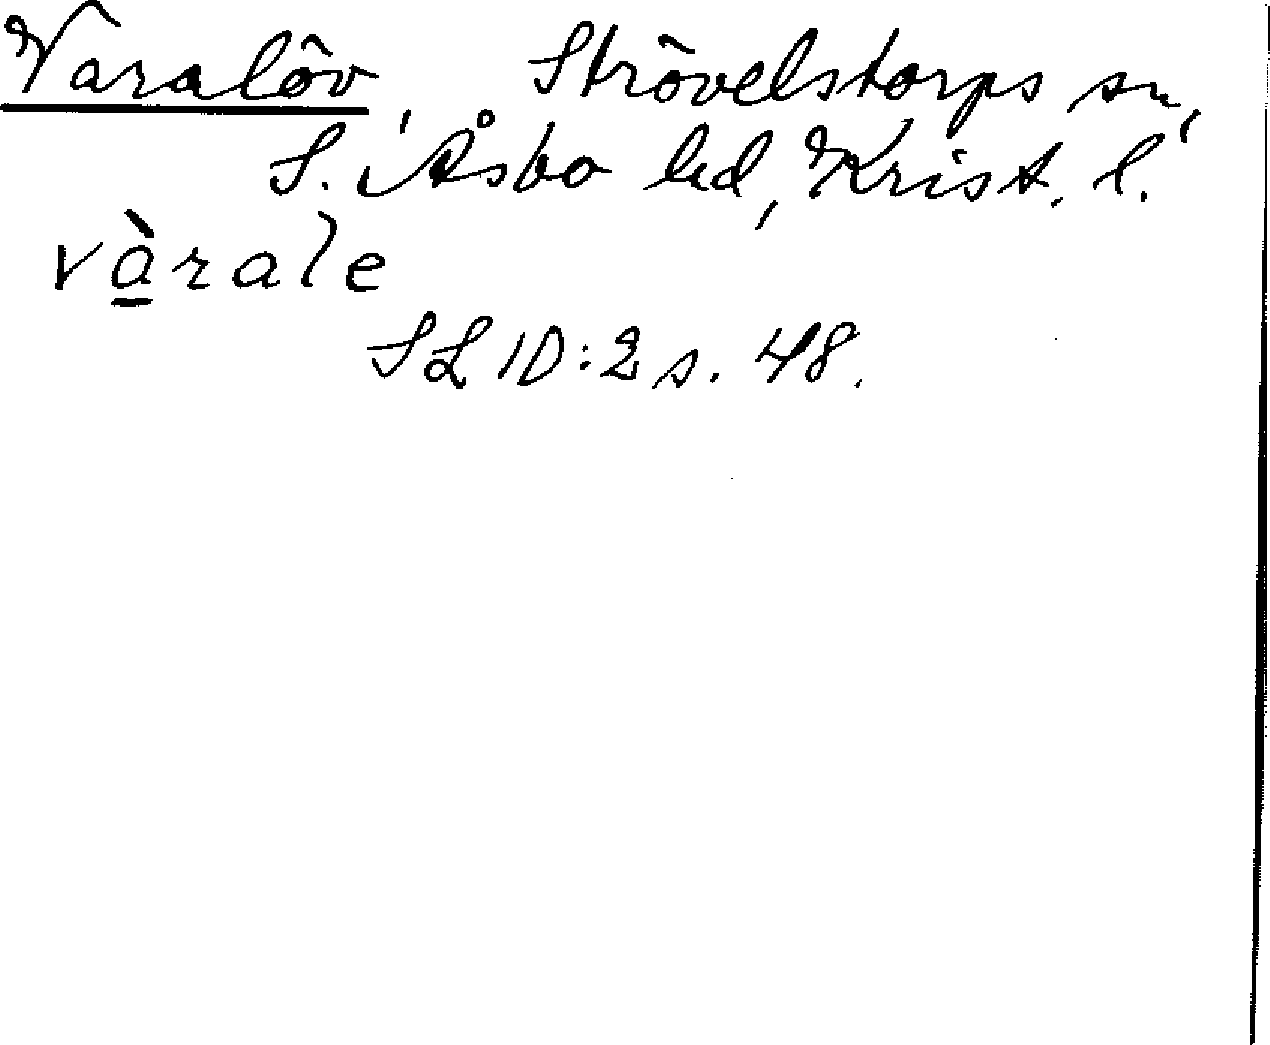 Varalöv, Strövelstorps sn,
S. Åsbo hd, Krist. l.
vàrale
SL 10:2 s. 48.